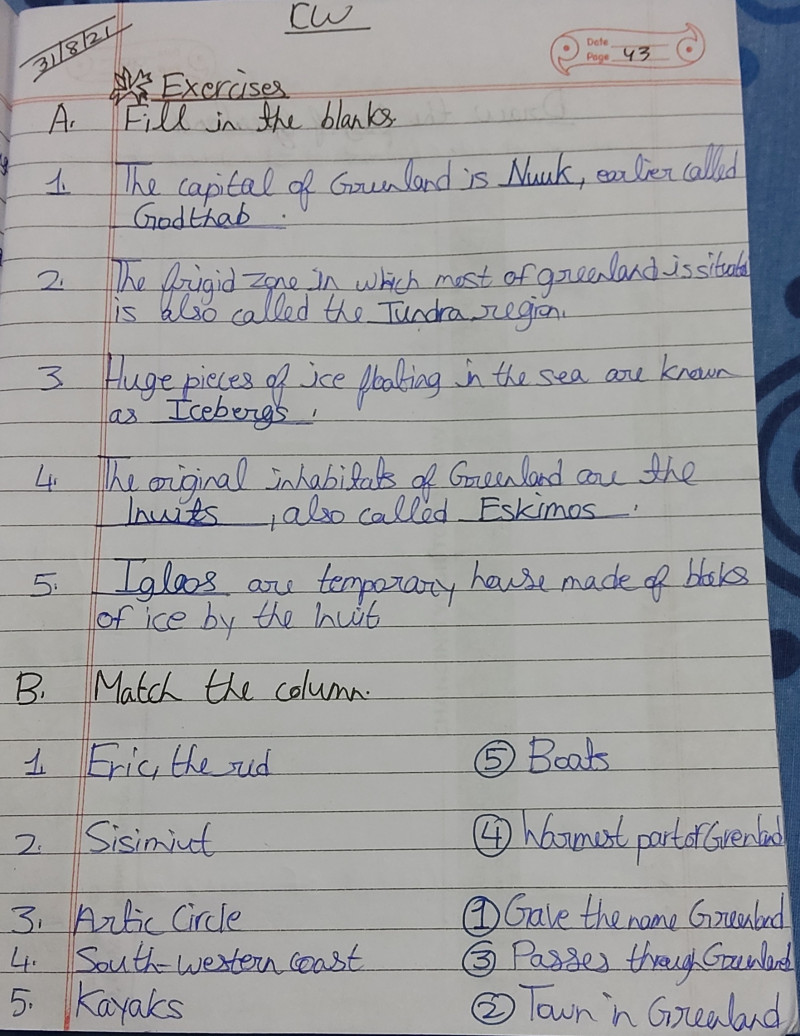 CW
31/8/21
Date
Page 43
Exercises
A. Fill in the blanks.
1. The capital of Greenland is Nuuk, earlier called
Godthab.
2. The frigid zone in which most of greenland is situated
is also called the Tundra region.
3 Huge pieces of ice floating in the sea are known
as Icebergs.
4. The original inhabitats of Greenland are the
Inuits, also called Eskimos.
5. Igloos are temporary house made of blocks
of ice by the Inuit
B. Match the column.
1. Eric, the red ⑤ Boats
2. Sisimiut ④ Warmest part of Grenland
3. Artic Circle ① Gave the name Greenland
4. South-western coast ③ Passes through Greenland
5. Kayaks ② Town in Greenland